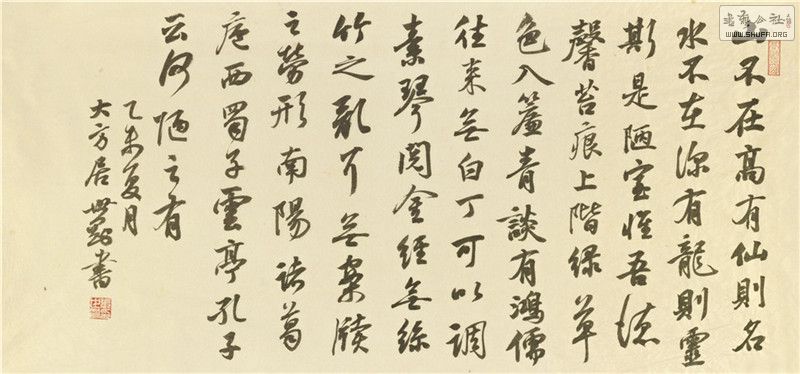 山不在高有仙則名
水不在深有龍則靈
斯是陋室惟吾德
馨苔痕上階綠草
色入簾青談有鴻儒
往來無白丁可以調
素琴閱金經無絲
竹之亂耳無案牘
之勞形南陽諸葛
廬西蜀子雲亭孔子
云何陋之有
乙未夏月
大方居世書
公社
WWW.SHUFA.ORG